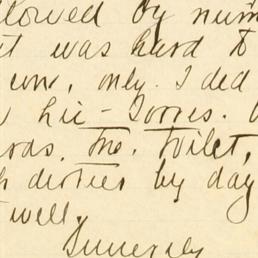 llowed by num
it was hard to
only. I did
hic - Torres.
ords. The. Toilet,
by day
well.
Sincerely